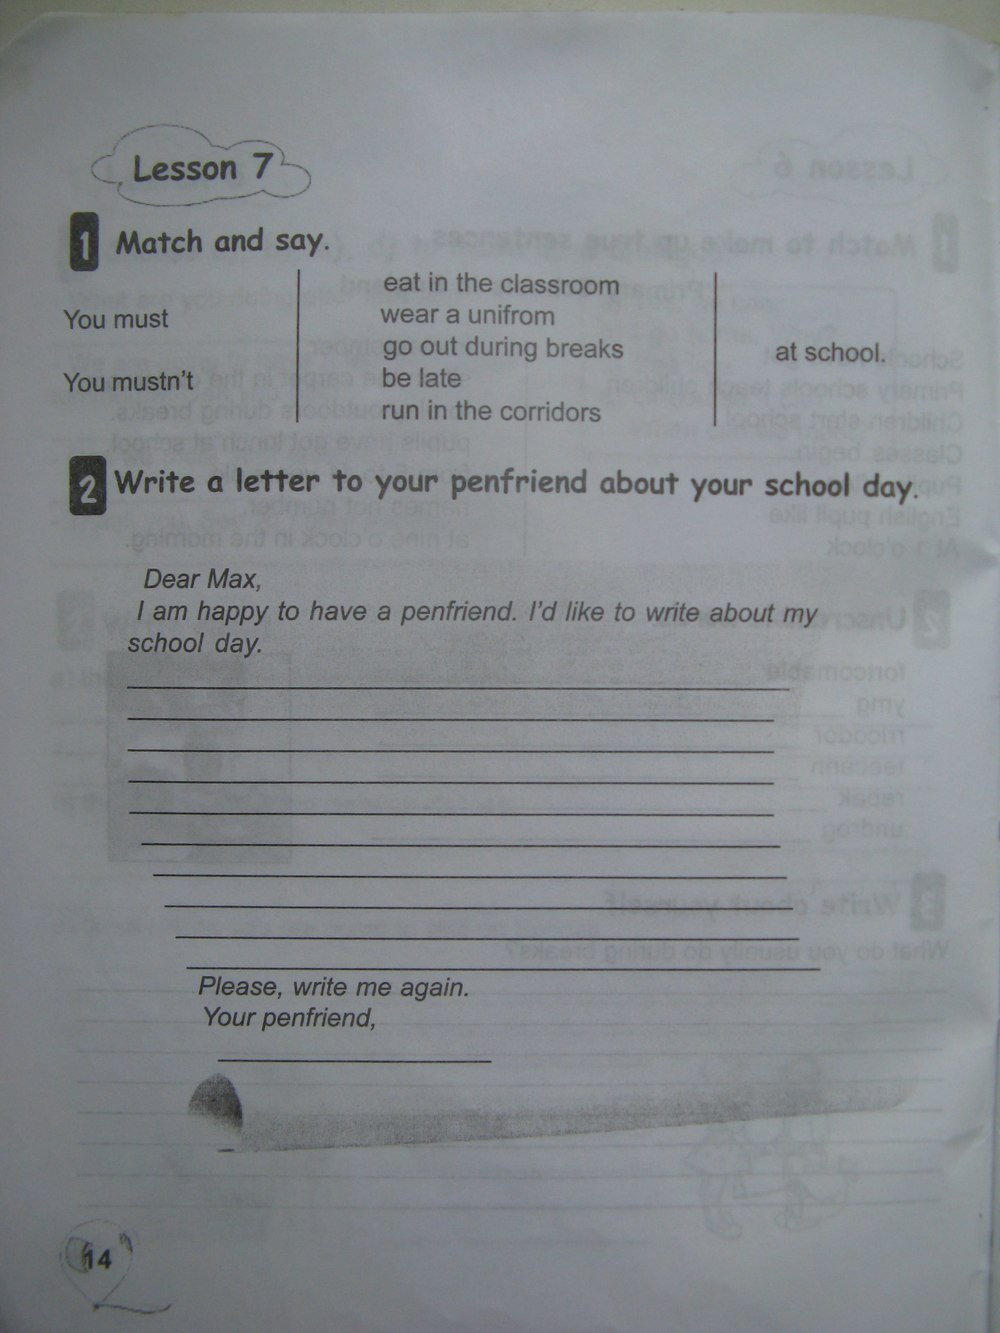 Lesson 7
1 Match and say.
eat in the classroom
You must wear a unifrom
go out during breaks at school.
You mustn't be late
run in the corridors
2 Write a letter to your penfriend about your school day.
Dear Max,
I am happy to have a penfriend. I'd like to write about my
school day.
Please, write me again.
Your penfriend,
14